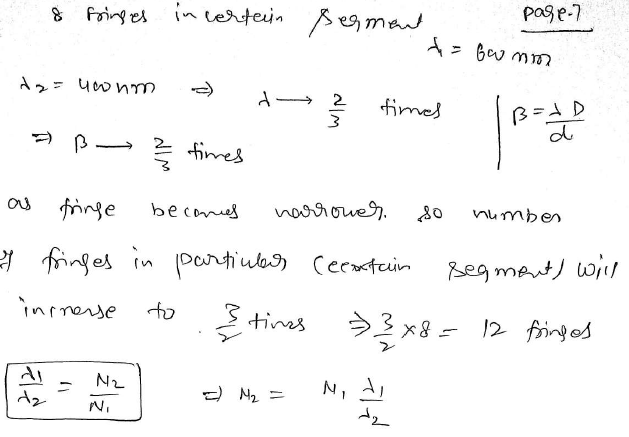 8 fringes in certain segment page-7
λ = 600 nm
λ2 = 400 nm ⇒ λ → 2/3 times | β = λD/d
⇒ β → 2/3 times
as fringe becomes narrower. so number
of fringes in particular (certain segment) will
increase to 3/2 times ⇒ 3/2 × 8 = 12 fringes
λ1/λ2 = N2/N1 ⇒ N2 = N1 λ1/λ2